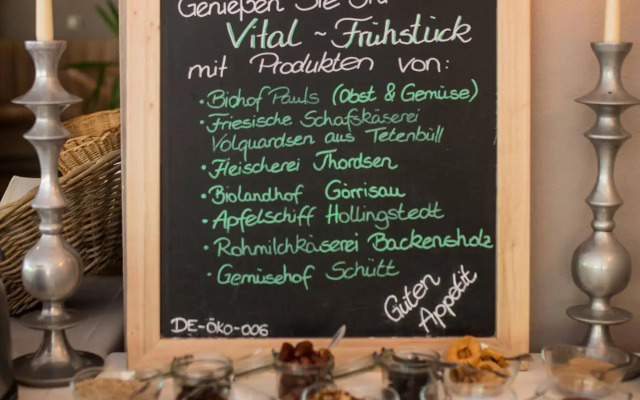 Genießen Sie Ihr
Vital ~ Frühstück
mit Produkten von:
• Biohof Pauls (Obst & Gemüse)
• Friesische Schafskäserei
Volquardsen aus Tetenbüll
• Fleischerei Thordsen
• Biolandhof Görrisau
• Apfelschiff Hollingstedt
• Rohmilchkäserei Backensholz
• Gemüsehof Schütt
Guten
Appetit
DE-ÖKO-006